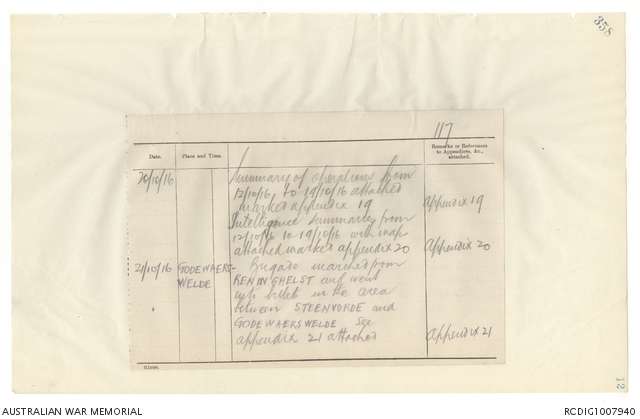 358
117
Date. Place and Time. Remarks or References
to Appendices, &c.,
attached.
20/10/16 Summary of operations from
12/10/16, to 19/10/16 attached
marked appendix 19 Appendix 19
Intelligence Summaries from
12/10/16 to 19/10/16 with map
attached marked appendix 20 Appendix 20
21/10/16 GODEWAERS- Brigade marched from
WELDE RENINGHELST and went
into billets in the area
between STEENVORDE and
GODEWAERSWELDE See
appendix 21 attached Appendix 21
12
AUSTRALIAN WAR MEMORIAL RCDIG1007940